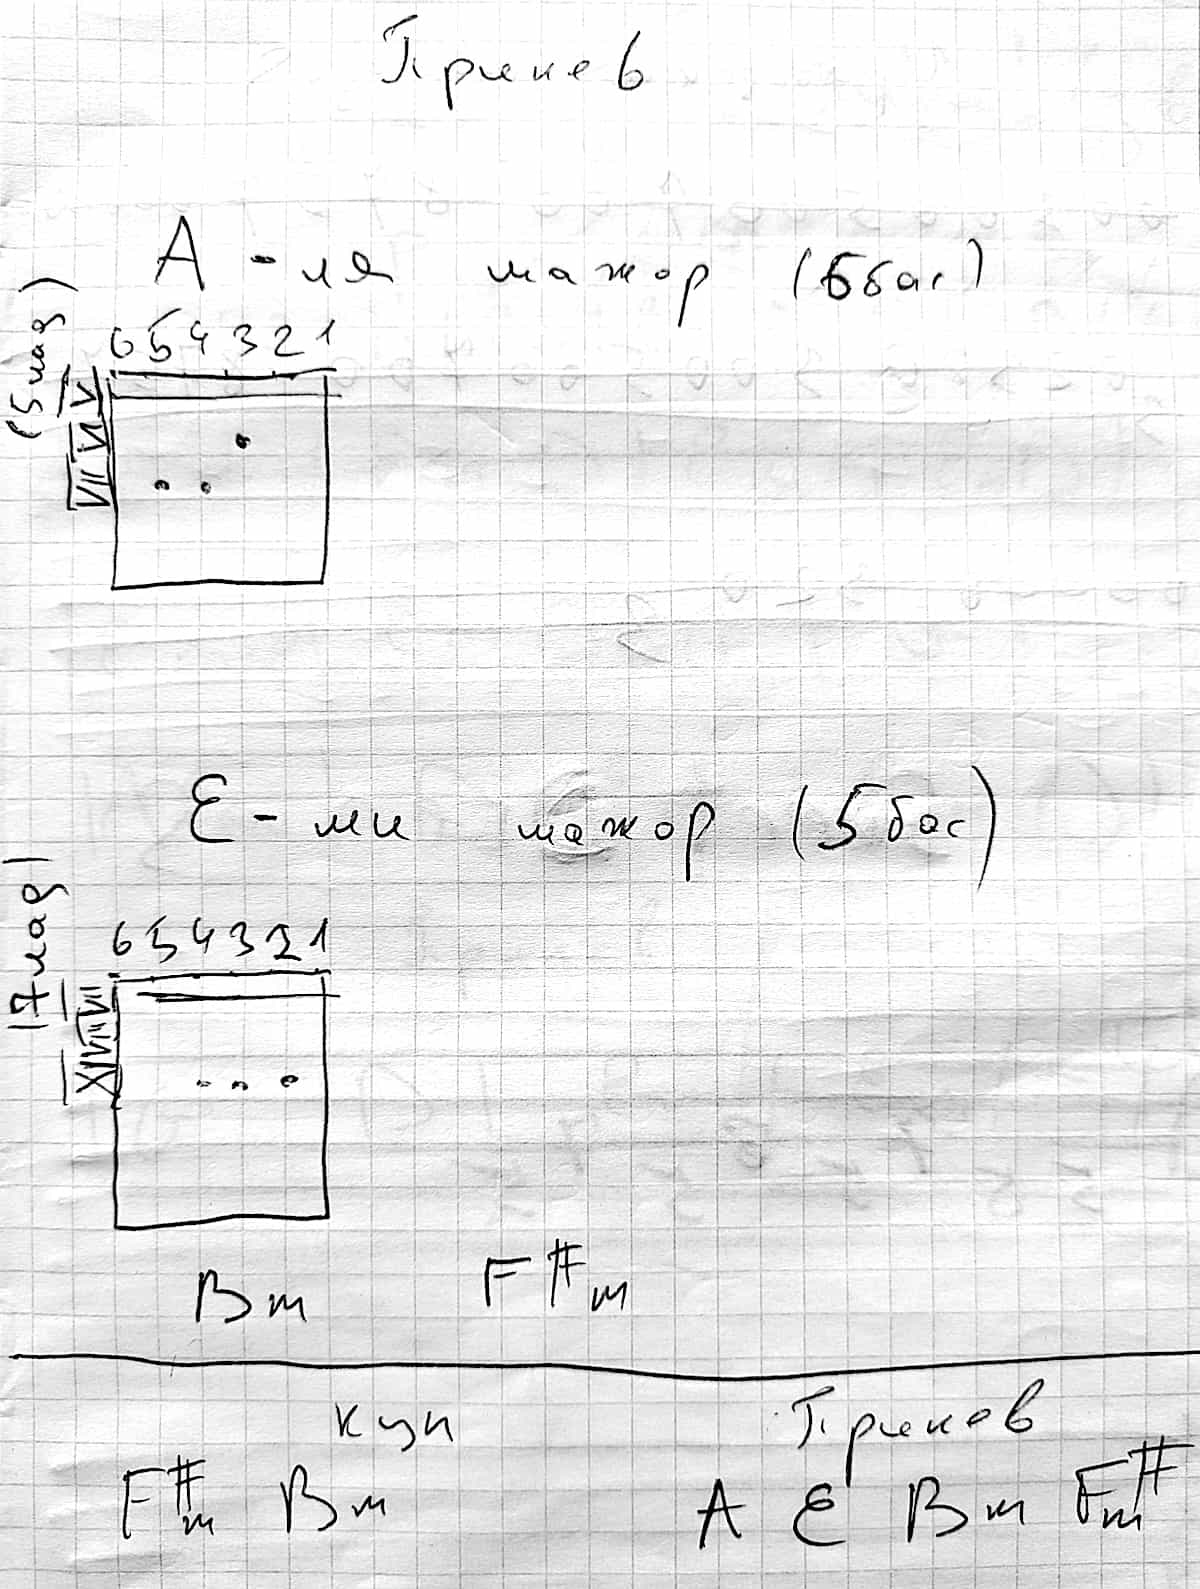 Припев
A - ля мажор (6 бас)
(5 лад)
6 5 4 3 2 1
V
VI
VII
E - ми мажор (5 бас)
(7 лад)
6 5 4 3 2 1
VII
VIII
XI
Bm F#m
куп Припев
F#m Bm A E Bm Fm#